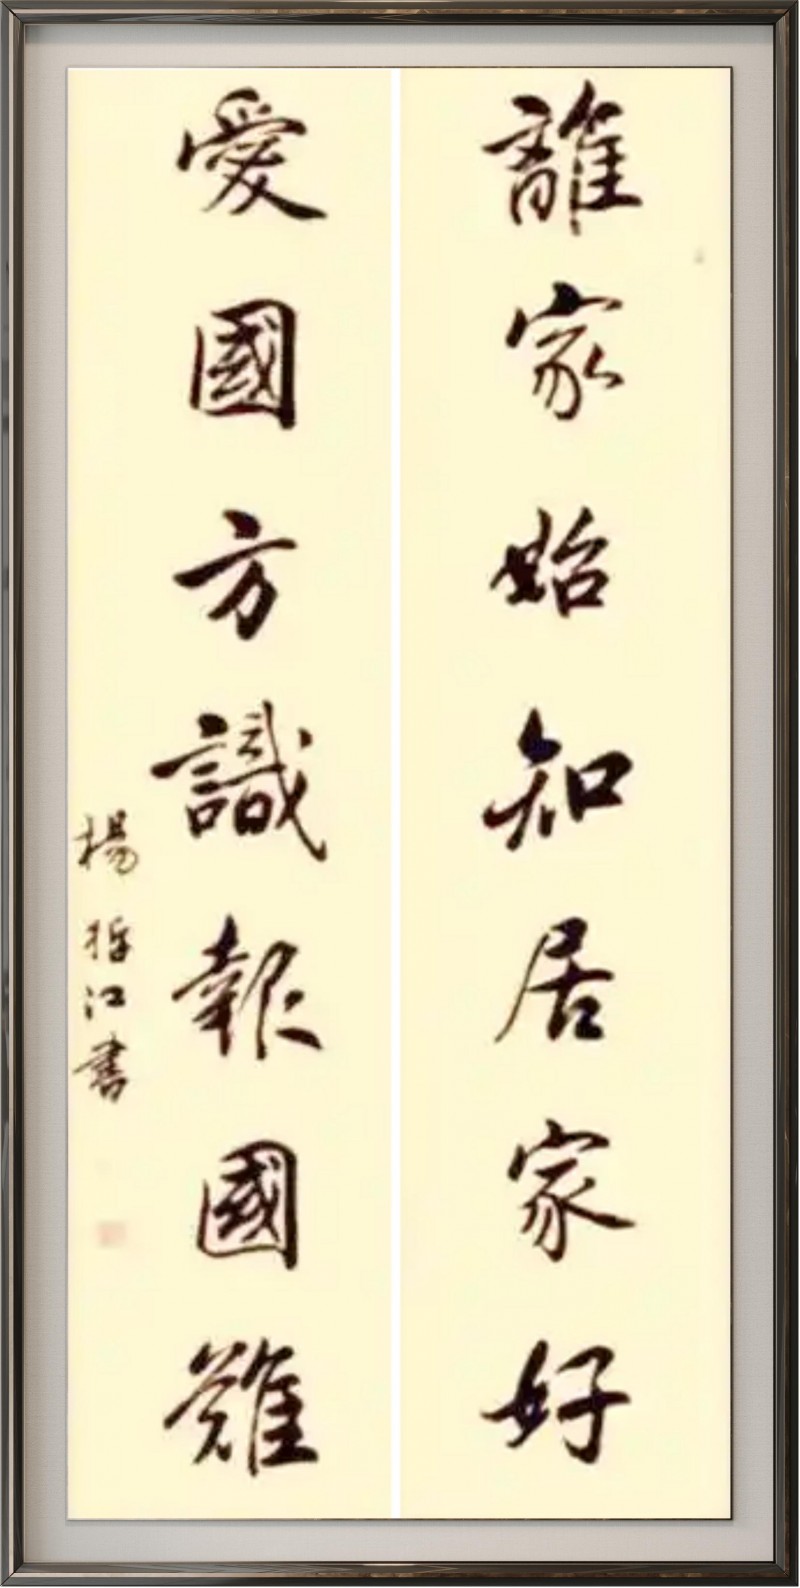 離家始知居家好
愛國方識報國難
楊江書